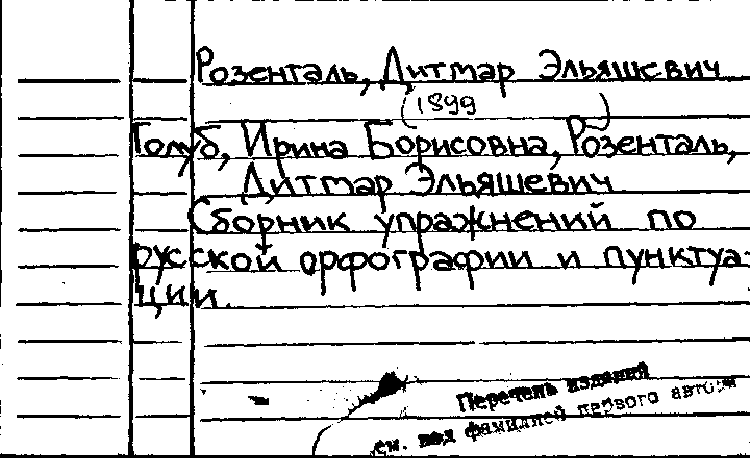 Розенталь, Дитмар Эльяшевич
(1899 )
Голуб, Ирина Борисовна, Розенталь,
Дитмар Эльяшевич
Сборник упражнений по
русской орфографии и пунктуа-
ции.
Перечень изданий
см. под фамилией первого автора